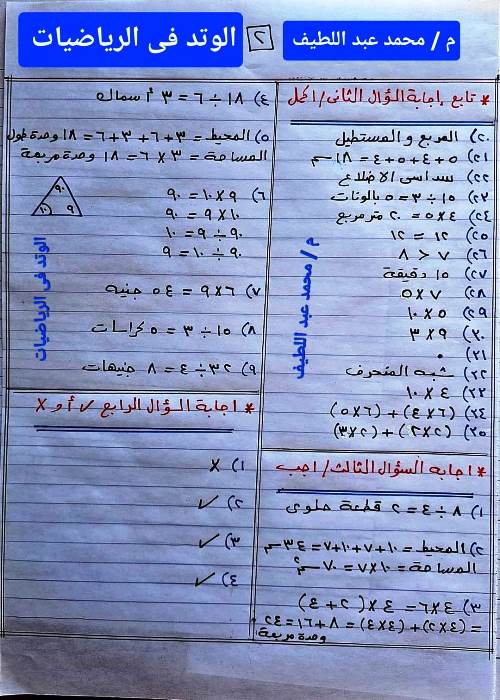 م / محمد عبد اللطيف
٢
الوتد فى الرياضيات
* تابع إجابة السؤال الثانى / اكمل
٢٠) المربع والمستطيل
٢١) ٥ + ٤ + ٥ + ٤ = ١٨ سم
٢٢) سداسى الاضلاع
٢٣) ١٥ ÷ ٣ = ٥ بالونات
٢٤) ٤ × ٥ = ٢٠ متر مربع
٢٥) ١٢ = ١٢
٢٦) ٧ < ٨
٢٧) ١٥ دقيقة
٢٨) ٧ × ٥
٢٩) ٥ × ١٠
٣٠) ٩ × ٣
٣١) ٠
٣٢) شبه المنحرف
٣٣) ٤ × ١٠
٣٤) (٦ × ٤) + (٦ × ٥)
٣٥) (٢ × ٢) + (٢ × ٣)
م / محمد عبد اللطيف
* اجابة السؤال الثالث / اجب
١) ٨ ÷ ٤ = ٢ قطعة حلوى
٢) المحيط = ١٠ + ٧ + ١٠ + ٧ = ٣٤ سم
المساحة = ١٠ × ٧ = ٧٠ سم٢
٣) ٤ × ٦ = ٤ × (٢ + ٤)
= (٤ × ٢) + (٤ × ٤) = ٨ + ١٦ = ٢٤
وحدة مربعة
٤) ١٨ ÷ ٦ = ٣ أسماك
٥) المحيط = ٣ + ٦ + ٣ + ٦ = ١٨ وحدة طول
المساحة = ٣ × ٦ = ١٨ وحدة مربعة
٦) ٩ × ١٠ = ٩٠
١٠ × ٩ = ٩٠
٩٠ ÷ ٩ = ١٠
٩٠ ÷ ١٠ = ٩
٩٠
١٠ ٩
٧) ٦ × ٩ = ٥٤ جنيه
٨) ١٥ ÷ ٣ = ٥ كراسات
٩) ٣٢ ÷ ٤ = ٨ جنيهات
الوتد فى الرياضيات
* اجابة السؤال الرابع ✓ أو X
١) X
٢) ✓
٣) ✓
٤) ✓